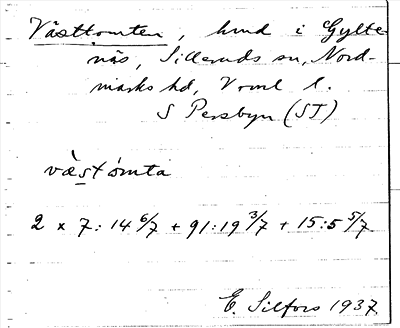 Västtomten, hmd i Gylte-
näs, Silleruds sn, Nord-
marks hd, Vrml l.
S Persbyn (ST)
væstòmta
2 x 7:14 6/7 + 91:19 3/7 + 15:5 5/7
E. Silfors 1937